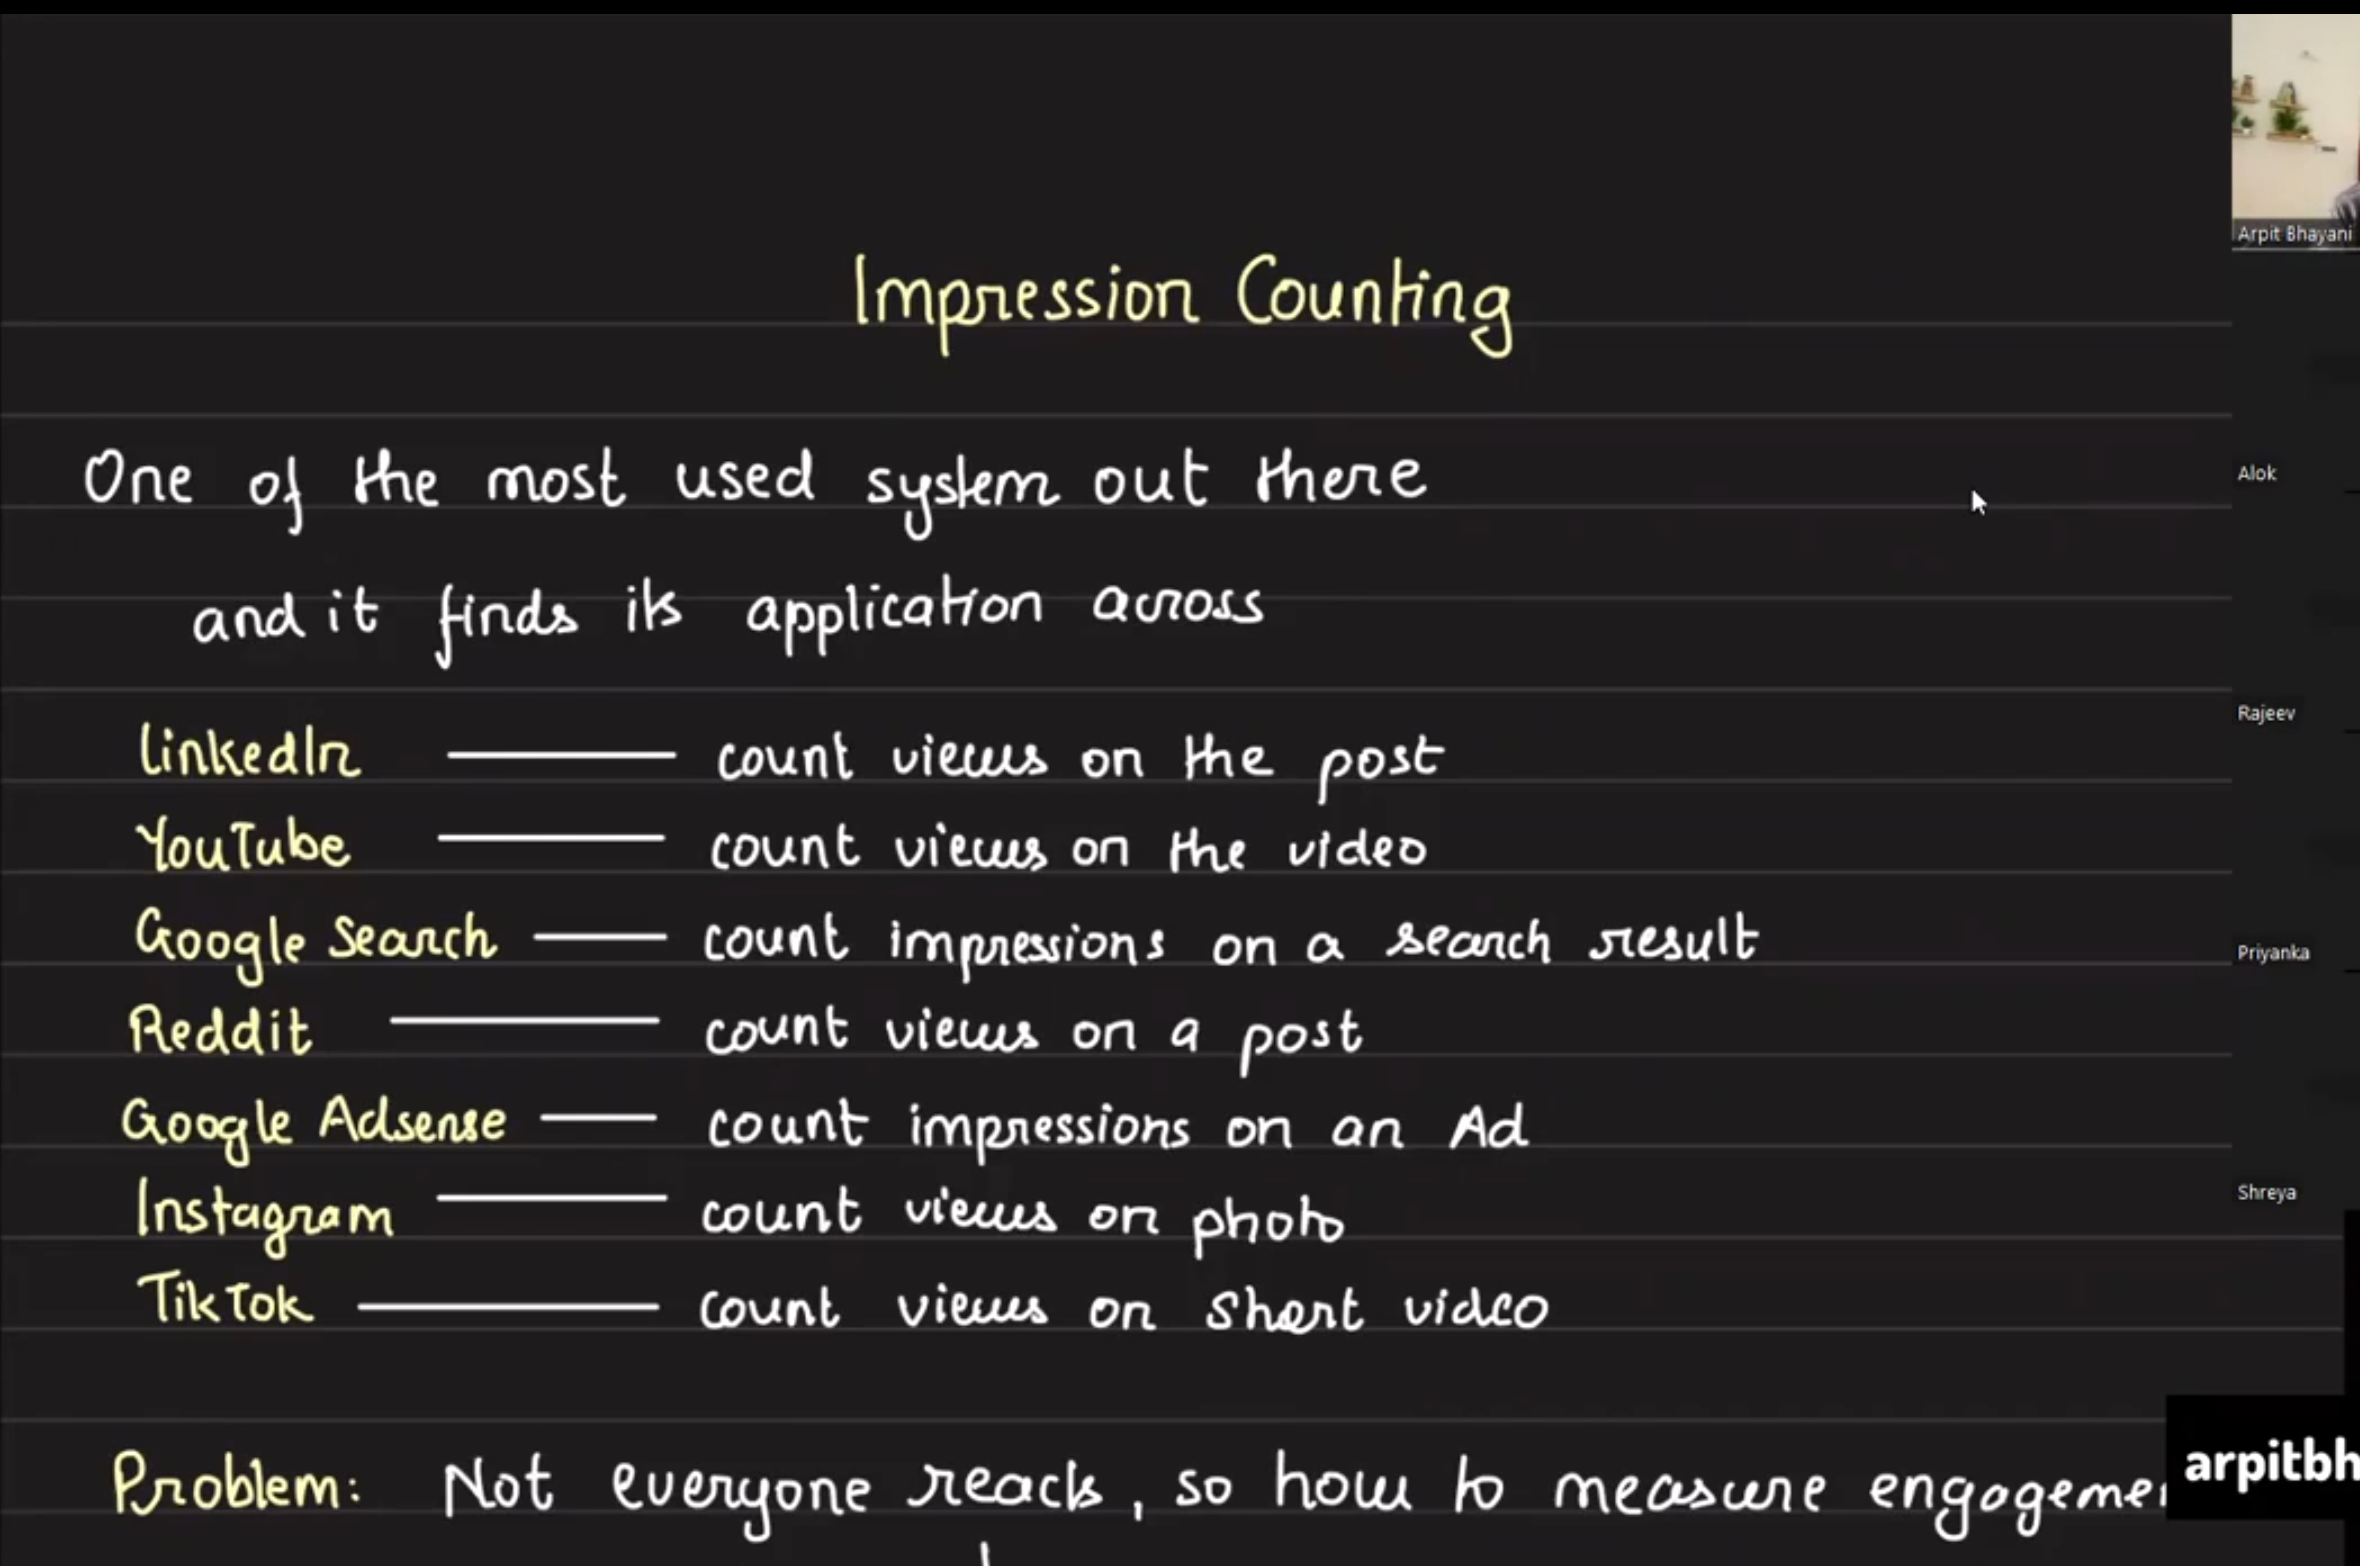 Impression Counting
One of the most used system out there
and it finds its application across
LinkedIn — count views on the post
YouTube — count views on the video
Google Search — count impressions on a search result
Reddit — count views on a post
Google Adsense — count impressions on an Ad
Instagram — count views on photo
TikTok — count views on short video
Problem: Not everyone reacts, so how to measure engagemen
Arpit Bhayani
Alok
Rajeev
Priyanka
Shreya
arpitbh